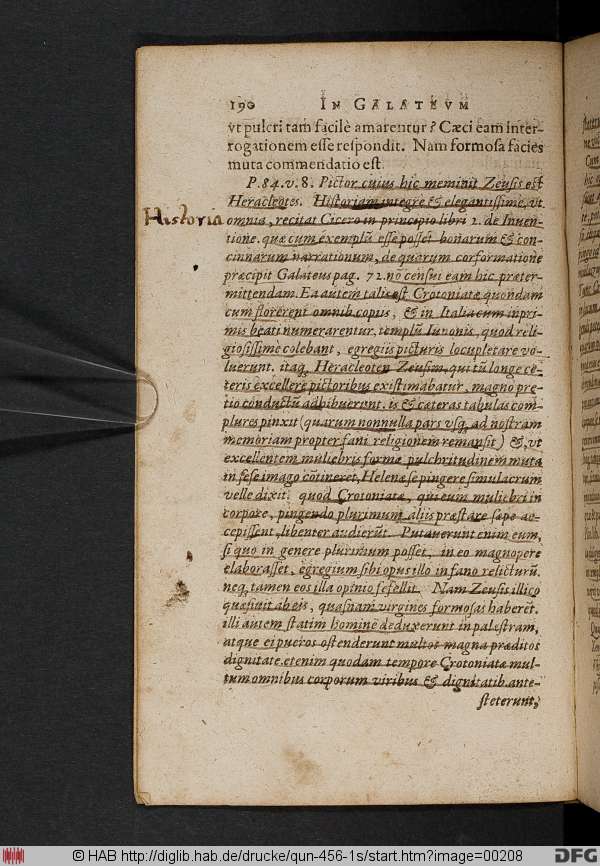 190 IN GALATEVM
vt pulcri tam facilè amarentur? Cæci eam inter-
rogationem esse respondit. Nam formosa facies
muta commendatio est.
P. 84. v. 8. Pictor cuius hic meminit Zeusis est
Heracleotes. Historiam integre & elegantissime, vt
Historia
omnia, recitat Cicero in principio libri 2. de Inuen-
tione. quæ cum exemplũ esse posset bonarum & con-
cinnarum narrationum, de quarum conformatione
præcipit Galateus pag. 72. nõ censui eam hic præter-
mittendam. Ea autem talis est. Crotoniatæ quondam
cum florerent omnib. copiis, & in Italia cum inpri-
mis beati numerarentur, templũ Iunonis, quod reli-
giosissime colebant, egregiis picturis locupletare vo-
luerunt. itaq; Heracleoten Zeusim, qui tũ longe cę-
teris excellere pictoribus existimabatur, magno pre-
tio conductũ adhibuerunt. is & cæteras tabulas com
plures pinxit (quarum nonnulla pars vsq; ad nostram
memoriam propter fani religionem remansit) &, vt
excellentem muliebris formæ pulchritudinem muta
in sese imago cõtineret, Helenæ se pingere simulacrum
velle dixit. quod Crotoniatæ, qui eum muliebri in
corpore, pingendo plurimum aliis præstare sæpe ac-
cepissent, libenter audierũt. Putauerunt enim eum,
si quo in genere plurimum posset, in eo magnopere
elaborasset, egregium sibi opus illo in fano relicturũ.
neq; tamen eos illa opinio fefellit. Nam Zeusis illico
quæsiuit ab eis, quasnam virgines formosas haberēt.
illi autem statim hominē deduxerunt in palæstram,
atque ei pueros ostenderunt multos magna præditos
dignitate. etenim quodam tempore Crotoniatæ mul-
tum omnibus corporum viribus & dignitatib. ante-
steterunt,
© HAB http://diglib.hab.de/drucke/qun-456-1s/start.htm?image=00208
DFG